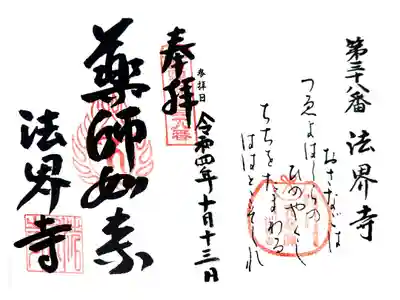 第三十八番 法界寺
つゑよはしらの
ひのやくし
ちちをたまわる
奉拝
参拝日
令和四年十月十三日
薬師如来
法界寺